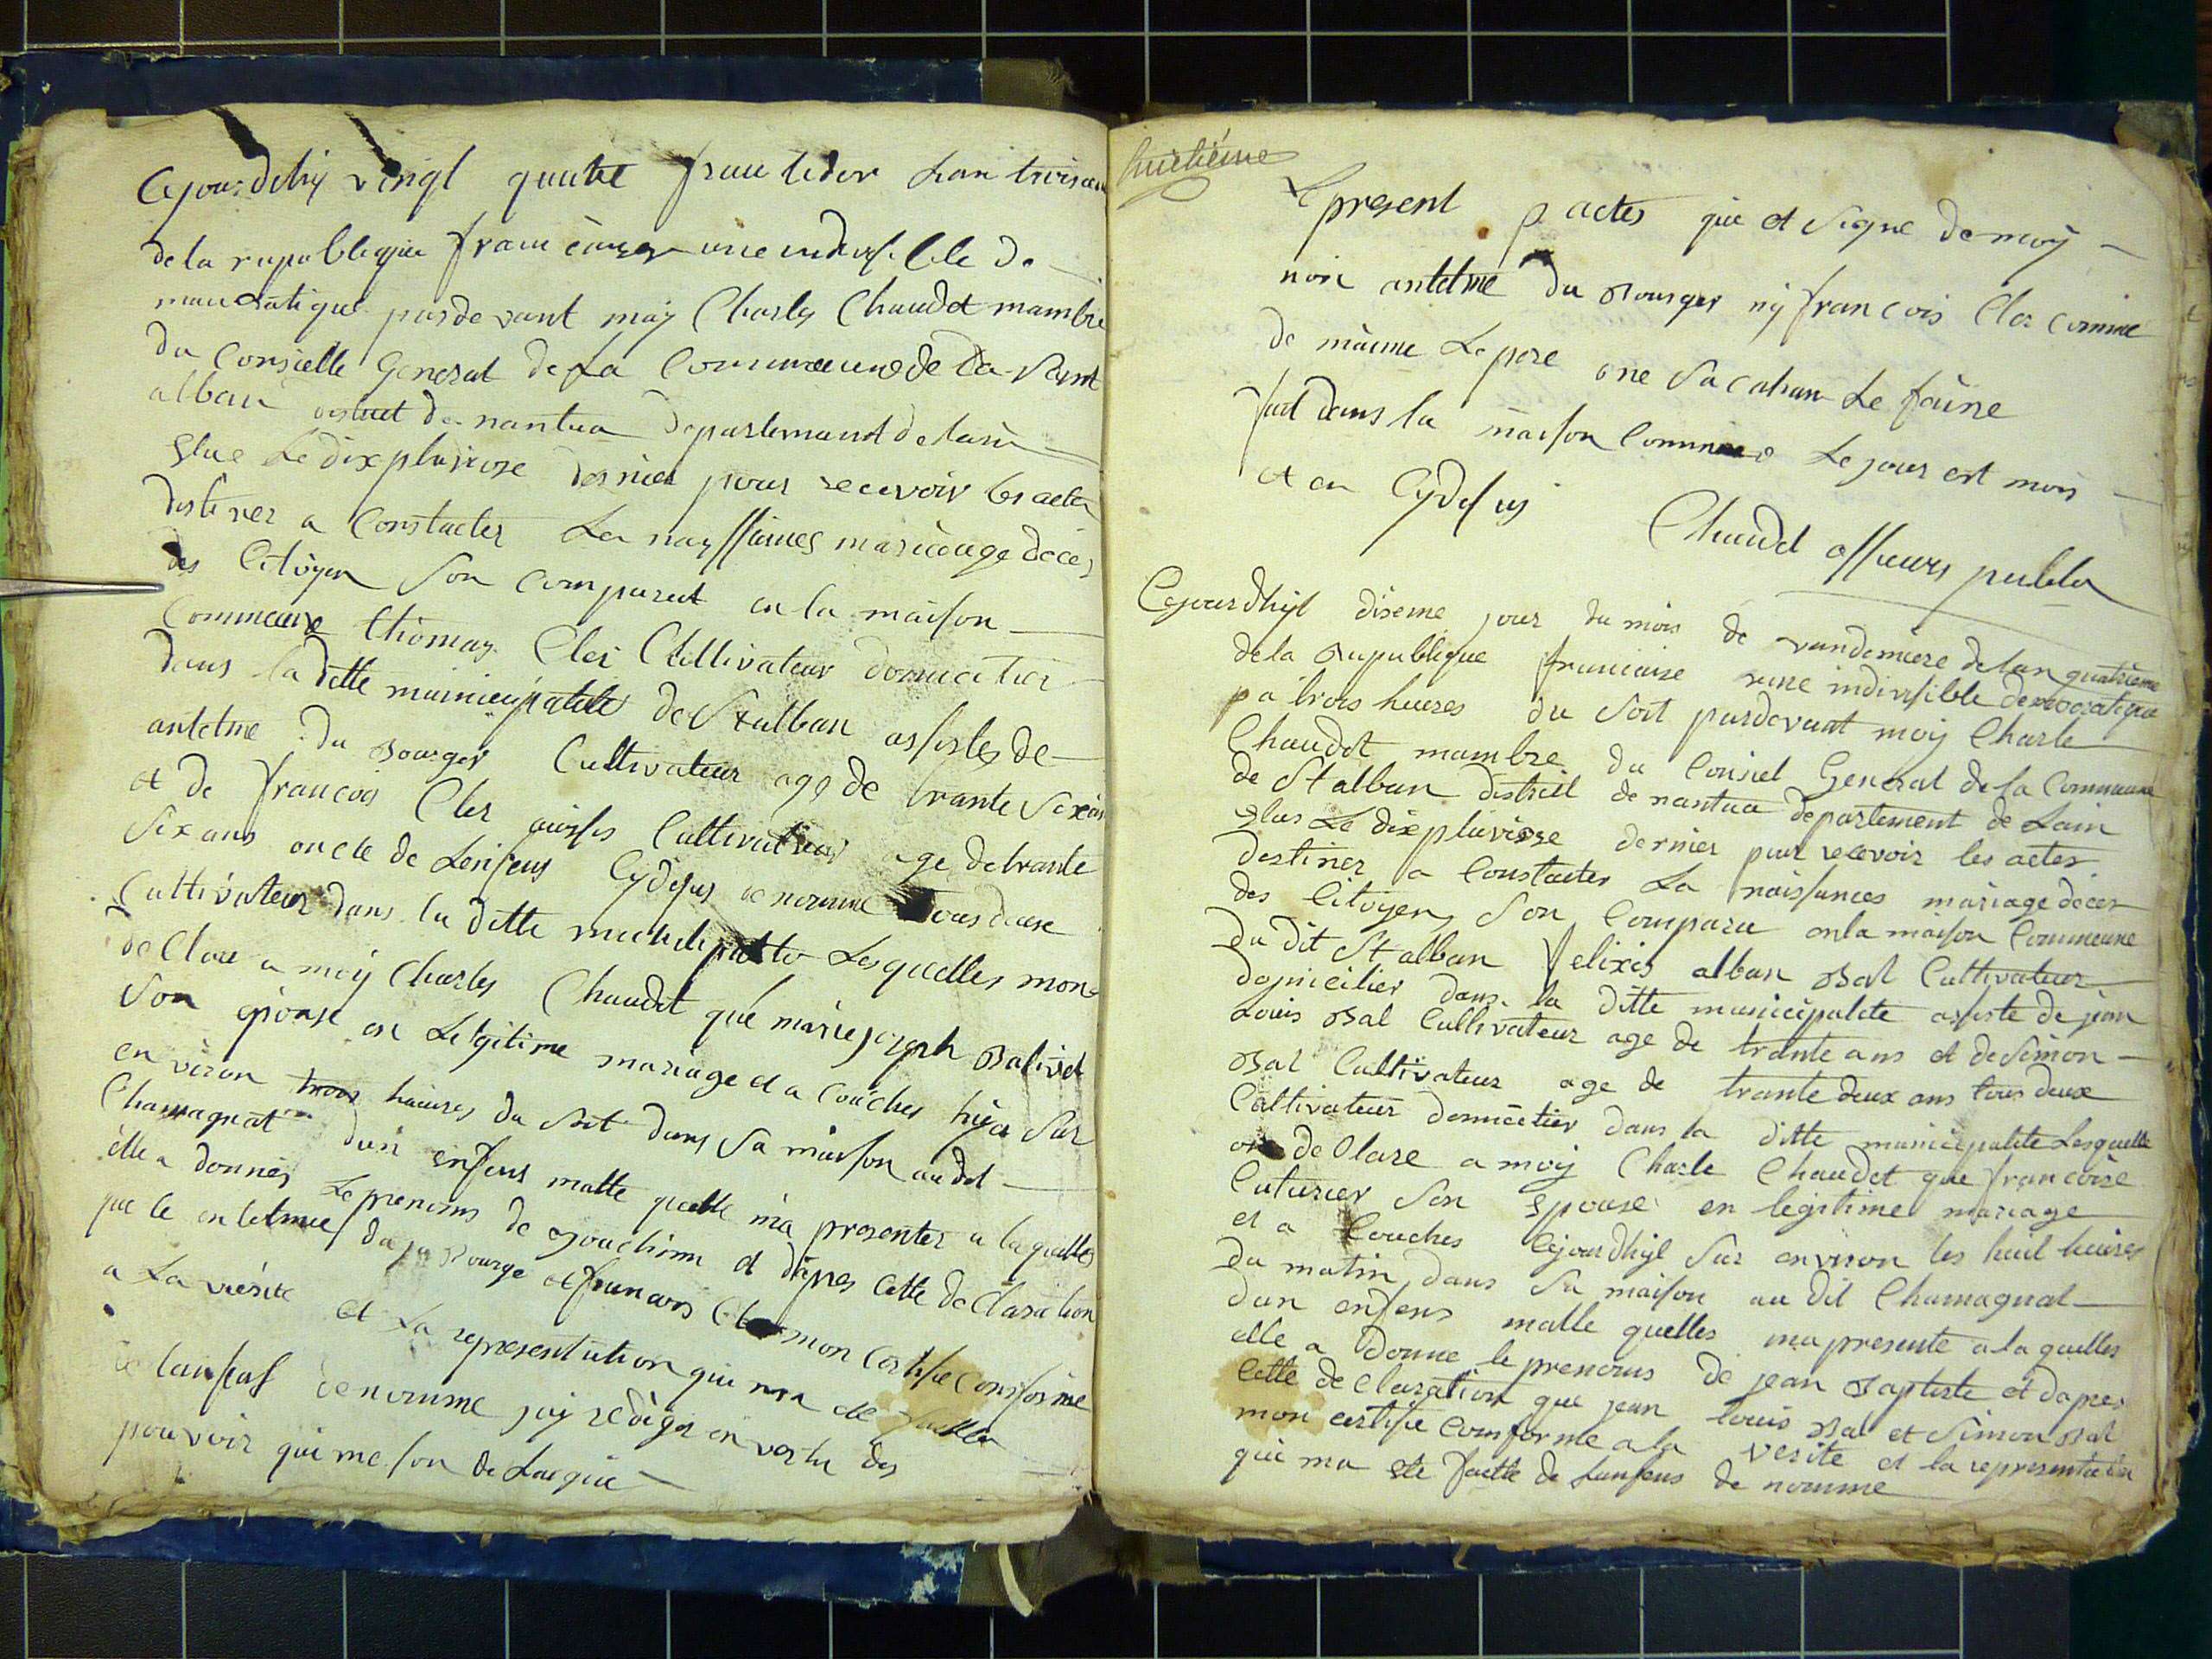 Cejourdehÿ vingt quatre fructidor Lan troisem
de la rupublique francèuse une indivisible de
maucratique pardevant moÿ Charles Chaudet mambre
du Conseille General de La Commeune de Saint
alban distriet de nantua Departement de lain
Elue Le dix pluviose dernier pour recevoir les actes
destiner a Constacter La nayssances mariaige deces
des Citoyen Son comparut en la maison
Commeune thomas Cler Cultivateur domicilier
dans la ditte municipalite de St alban assistes de
antelme du Bourger Cultivateur age de trante six ans
et de francois Cler aussis Cultivateur age de trante
six ans oncle de Lenfens Cydesus denomme tous deux
Cultivateur dans la ditte municipalite Lesquelles mon
de Clare a moÿ Charles Chaudet que marie joseph Balivet
son epouse en Legitime mariage et a Couches hyer Sur
en viron trois heuires du Soit dans Sa maison au dit
Chamagnat dun enfens malle quelle ma presenter a laquelles
elle a donner Le prenoms de Jouachim et dapres cette de Claration
que le antelme du Bourge et francois Cler mon Certifie Conforme
a La verite et La representation qui ma ete faitte
de lanfas denomme jay redeger en vertu des
pouvoir qui me son de Legue
huitiéme
Le present actes que et signe de moÿ
non antelme du Bourger nÿ francois Cler comme
de maime Le pere one Sachan Le faire
fait dans la maison Commune Le jour est mois
et an Cydesus
Chaudet officiers public
Cejourdhyl diseme jour du mois de vandemiere de lan quatrieme
de la Rupublique franciaise une indivisible democratique
a trois heures du Soit pardevant moÿ Charle
Chaudet mambre du Consiel General de la Commune
de St alban distriel de nantua departement de Lain
Elus Le dix pluviose dernier pour recevoir les actes
destiner a Constacter La naissances mariage deces
des Citoyen Son Comparu en la maison Commeune
du dit St alban felixis alban Bal Cultivateur
domicilier dans la ditte municipalete assiste de jean
Louis Bal Cultivateur age de trante ans et de Simon
Bal Cultivateur age de trante deux ans tous deux
Caltivateur domicilier dans la ditte municipalite Lesquelle
on de Clare a moÿ Charle Chaudet que francoise
Cuturier Son Epouse en legitime mariage
et a Couches Cejourdhyl Sur environ les huit heuires
du matin dans Sa maison au dit Chamagnat
dun enfens malle quelles ma presente a la quelles
elle a donne le prenoms de jean Baptiste et dapres
Cette de Claration que jean louis Bal et Simon Bal
mon certifie Comforme a la verite et la representation
qui ma ete faitte de Lenfens de nomme